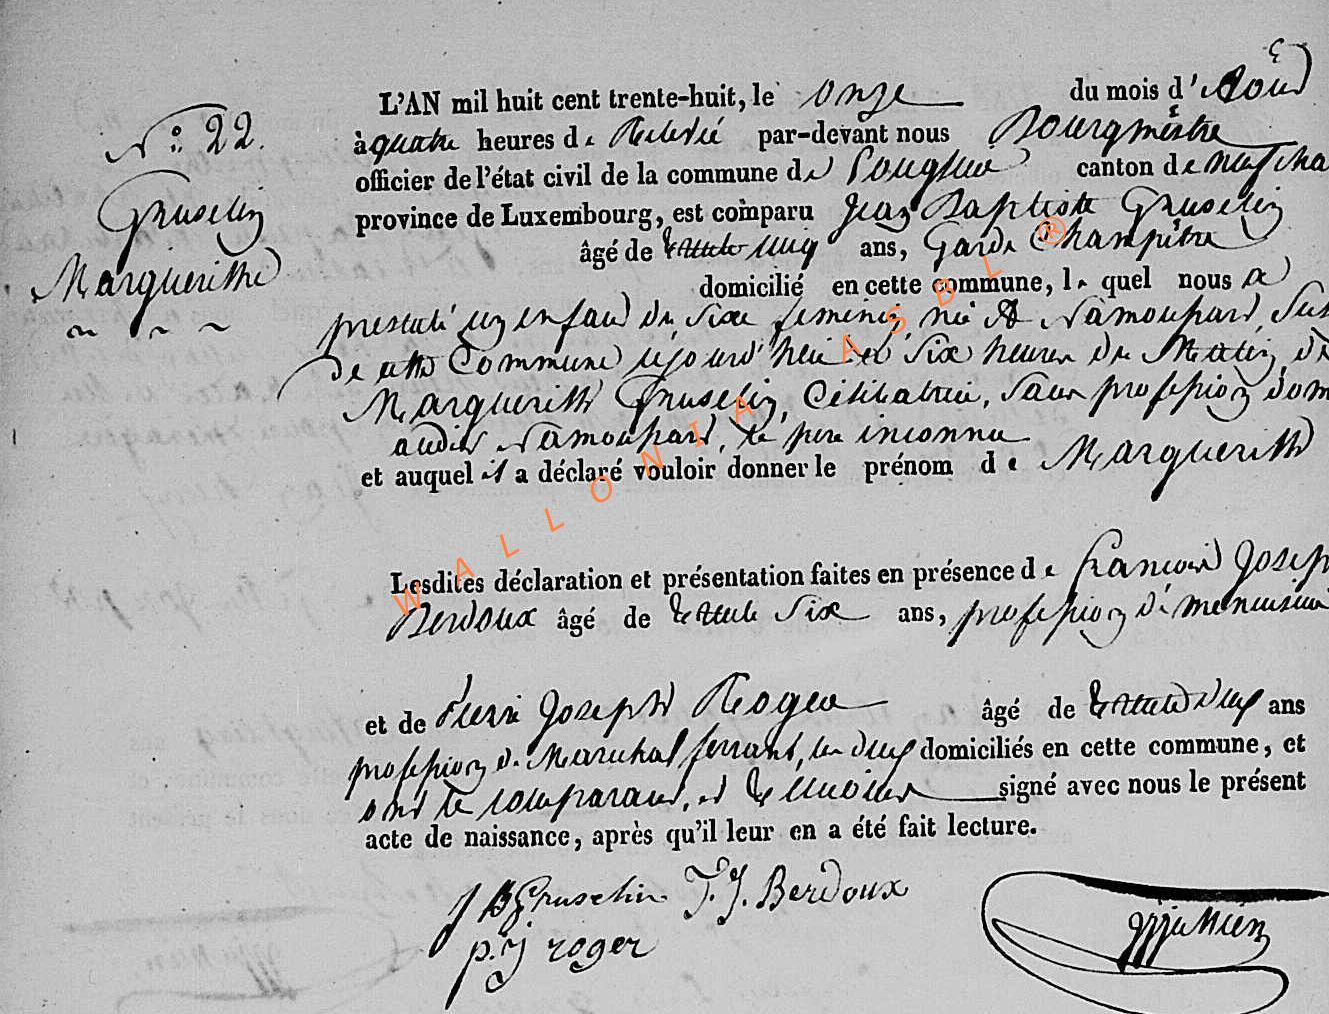 N.° 22.
Gruselin
Marguerithe
L'AN mil huit cent trente-huit, le onze du mois d'Août
à quatre heures de Relevé par-devant nous Bourgmestre
officier de l'état civil de la commune de canton de neufcha
province de Luxembourg, est comparu Jean Baptiste Gruselin
âgé de ans, Garde Champêtre
domicilié en cette commune, le quel nous a
presenté un enfant du sixe feminin, née à Namoupard, sur
de cette Commune cejourd'hui à six heures du Matin, de
Marguerith Gruselin, Célibataire, sans profession dom
audit Namoupard, le pere inconnu
et auquel il a déclaré vouloir donner le prénom de Marguerith
Lesdites déclaration et présentation faites en présence de François Joseph
Berdoux âgé de trente six ans, profession de menuisier
et de Pierre Joseph Roger âgé de trente deux ans
profession de Marechal ferrant, les deux domiciliés en cette commune, et
ont le comparant, et temoins signé avec nous le présent
acte de naissance, après qu'il leur en a été fait lecture.
J B Gruselin F. J. Berdoux
p. j roger
WALLONIA ASBL ®